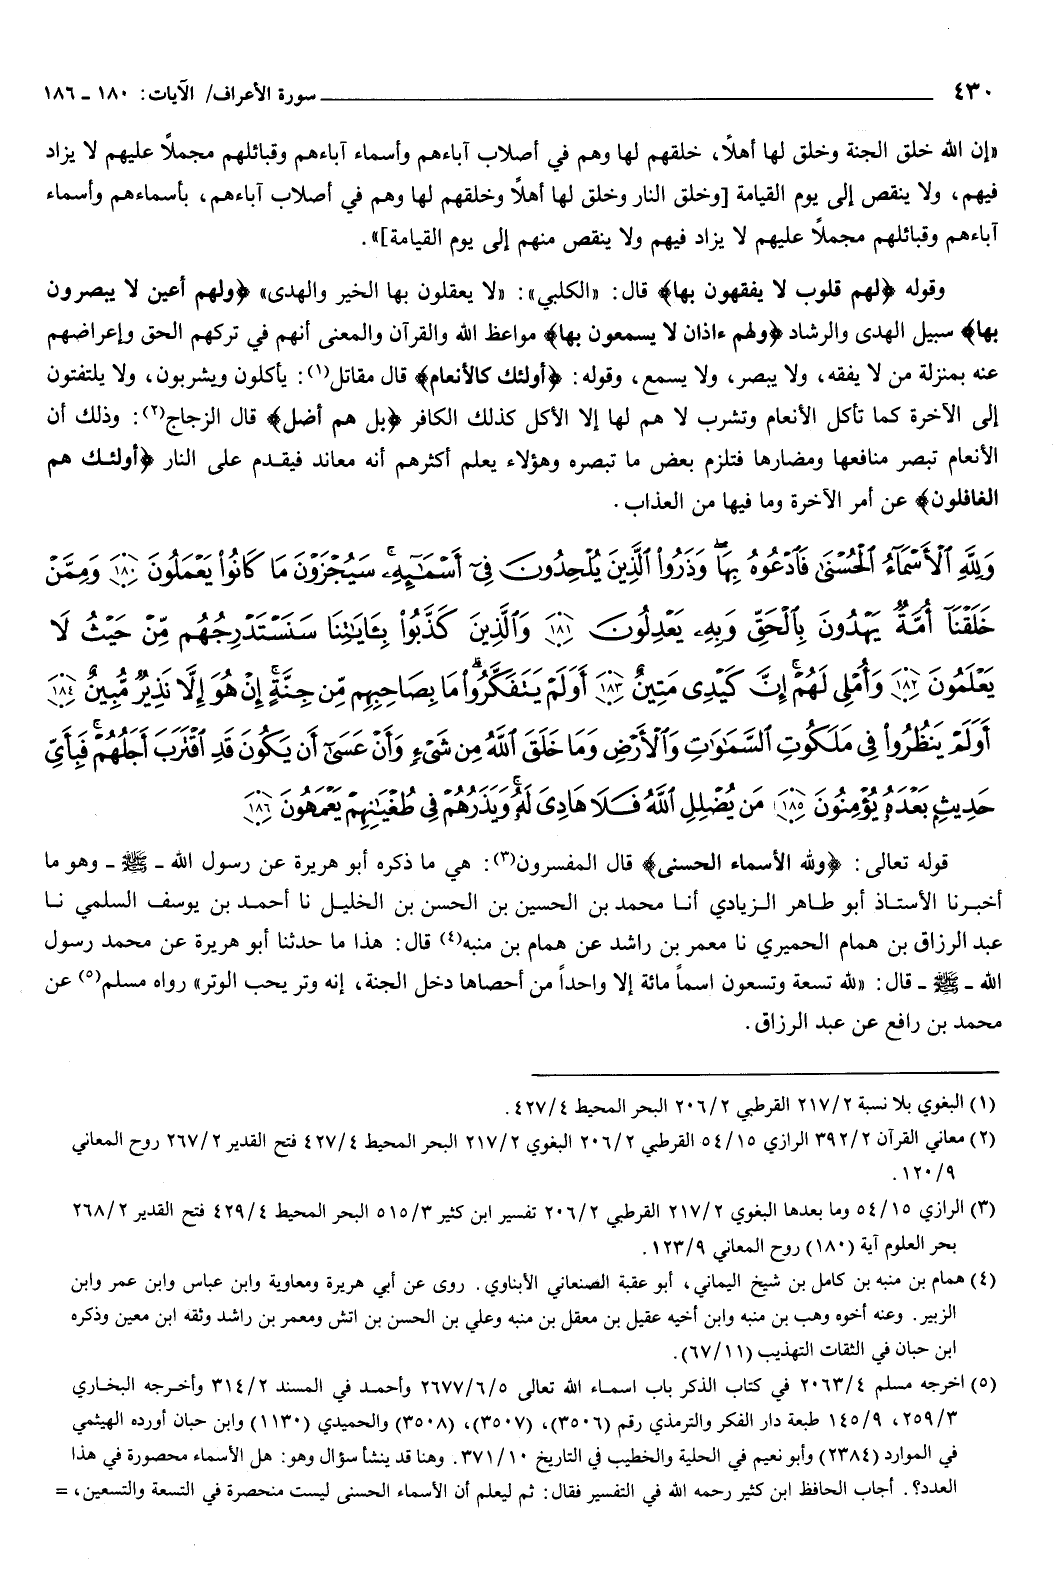 ٤٣٠ سورة الأعراف/ الآيات: ١٨٠ ـ ١٨٦
«إن الله خلق الجنة وخلق لها أهلاً، خلقهم لها وهم في أصلاب آباءهم وأسماء آباءهم وقبائلهم مجملاً عليهم لا يزاد
فيهم، ولا ينقص إلى يوم القيامة [وخلق النار وخلق لها أهلاً وخلقهم لها وهم في أصلاب آباءهم، بأسماءهم وأسماء
آباءهم وقبائلهم مجملاً عليهم لا يزاد فيهم ولا ينقص منهم إلى يوم القيامة]».
وقوله ﴿لهم قلوب لا يفقهون بها﴾ قال: «الكلبي»: «لا يعقلون بها الخير والهدى» ﴿ولهم أعين لا يبصرون
بها﴾ سبيل الهدى والرشاد ﴿ولهم ءاذان لا يسمعون بها﴾ مواعظ الله والقرآن والمعنى أنهم في تركهم الحق وإعراضهم
عنه بمنزلة من لا يفقه، ولا يبصر، ولا يسمع، وقوله: ﴿أولئك كالأنعام﴾ قال مقاتل(١): يأكلون ويشربون، ولا يلتفتون
إلى الآخرة كما تأكل الأنعام وتشرب لا هم لها إلا الأكل كذلك الكافر ﴿بل هم أضل﴾ قال الزجاج(٢): وذلك أن
الأنعام تبصر منافعها ومضارها فتلزم بعض ما تبصره وهؤلاء يعلم أكثرهم أنه معاند فيقدم على النار ﴿أولئك هم
الغافلون﴾ عن أمر الآخرة وما فيها من العذاب.
وَلِلَّهِ ٱلْأَسْمَآءُ ٱلْحُسْنَىٰ فَٱدْعُوهُ بِهَا ۖ وَذَرُوا۟ ٱلَّذِينَ يُلْحِدُونَ فِىٓ أَسْمَـٰٓئِهِۦ ۚ سَيُجْزَوْنَ مَا كَانُوا۟ يَعْمَلُونَ ۝١٨٠ وَمِمَّنْ
خَلَقْنَآ أُمَّةٌ يَهْدُونَ بِٱلْحَقِّ وَبِهِۦ يَعْدِلُونَ ۝١٨١ وَٱلَّذِينَ كَذَّبُوا۟ بِـَٔايَـٰتِنَا سَنَسْتَدْرِجُهُم مِّنْ حَيْثُ لَا
يَعْلَمُونَ ۝١٨٢ وَأُمْلِى لَهُمْ ۚ إِنَّ كَيْدِى مَتِينٌ ۝١٨٣ أَوَلَمْ يَتَفَكَّرُوا۟ ۗ مَا بِصَاحِبِهِم مِّن جِنَّةٍ ۚ إِنْ هُوَ إِلَّا نَذِيرٌ مُّبِينٌ ۝١٨٤
أَوَلَمْ يَنظُرُوا۟ فِى مَلَكُوتِ ٱلسَّمَـٰوَٰتِ وَٱلْأَرْضِ وَمَا خَلَقَ ٱللَّهُ مِن شَىْءٍ وَأَنْ عَسَىٰٓ أَن يَكُونَ قَدِ ٱقْتَرَبَ أَجَلُهُمْ ۖ فَبِأَىِّ
حَدِيثٍۭ بَعْدَهُۥ يُؤْمِنُونَ ۝١٨٥ مَن يُضْلِلِ ٱللَّهُ فَلَا هَادِىَ لَهُۥ ۚ وَيَذَرُهُمْ فِى طُغْيَـٰنِهِمْ يَعْمَهُونَ ۝١٨٦
قوله تعالى: ﴿ولله الأسماء الحسنى﴾ قال المفسرون(٣): هي ما ذكره أبو هريرة عن رسول الله ـ ﷺ ـ وهو ما
أخبرنا الأستاذ أبو طاهر الزيادي أنا محمد بن الحسين بن الحسن بن الخليل نا أحمد بن يوسف السلمي نا
عبد الرزاق بن همام الحميري نا معمر بن راشد عن همام بن منبه(٤) قال: هذا ما حدثنا أبو هريرة عن محمد رسول
الله ـ ﷺ ـ قال: «لله تسعة وتسعون اسماً مائة إلا واحداً من أحصاها دخل الجنة، إنه وتر يحب الوتر» رواه مسلم(٥) عن
محمد بن رافع عن عبد الرزاق.
(١) البغوي بلا نسبة ٢/ ٢١٧ القرطبي ٢/ ٢٠٦ البحر المحيط ٤/ ٤٢٧.
(٢) معاني القرآن ٢/ ٣٩٢ الرازي ١٥/ ٥٤ القرطبي ٢/ ٢٠٦ البغوي ٢/ ٢١٧ البحر المحيط ٤/ ٤٢٧ فتح القدير ٢/ ٢٦٧ روح المعاني
٩/ ١٢٠.
(٣) الرازي ١٥/ ٥٤ وما بعدها البغوي ٢/ ٢١٧ القرطبي ٢/ ٢٠٦ تفسير ابن كثير ٣/ ٥١٥ البحر المحيط ٤/ ٤٢٩ فتح القدير ٢/ ٢٦٨
بحر العلوم آية (١٨٠) روح المعاني ٩/ ١٢٣.
(٤) همام بن منبه بن كامل بن شيخ اليماني، أبو عقبة الصنعاني الأبناوي. روى عن أبي هريرة ومعاوية وابن عباس وابن عمر وابن
الزبير. وعنه أخوه وهب بن منبه وابن أخيه عقيل بن معقل بن منبه وعلي بن الحسن بن اتش ومعمر بن راشد وثقه ابن معين وذكره
ابن حبان في الثقات التهذيب (١١/ ٦٧).
(٥) اخرجه مسلم ٤/ ٢٠٦٣ في كتاب الذكر باب اسماء الله تعالى ٥/ ٦/ ٢٦٧٧ وأحمد في المسند ٢/ ٣١٤ وأخرجه البخاري
٣/ ٢٥٩، ٩/ ١٤٥ طبعة دار الفكر والترمذي رقم (٣٥٠٦)، (٣٥٠٧)، (٣٥٠٨) والحميدي (١١٣٠) وابن حبان أورده الهيثمي
في الموارد (٢٣٨٤) وأبو نعيم في الحلية والخطيب في التاريخ ١٠/ ٣٧١. وهنا قد ينشأ سؤال وهو: هل الأسماء محصورة في هذا
العدد؟. أجاب الحافظ ابن كثير رحمه الله في التفسير فقال: ثم ليعلم أن الأسماء الحسنى ليست منحصرة في التسعة والتسعين، =